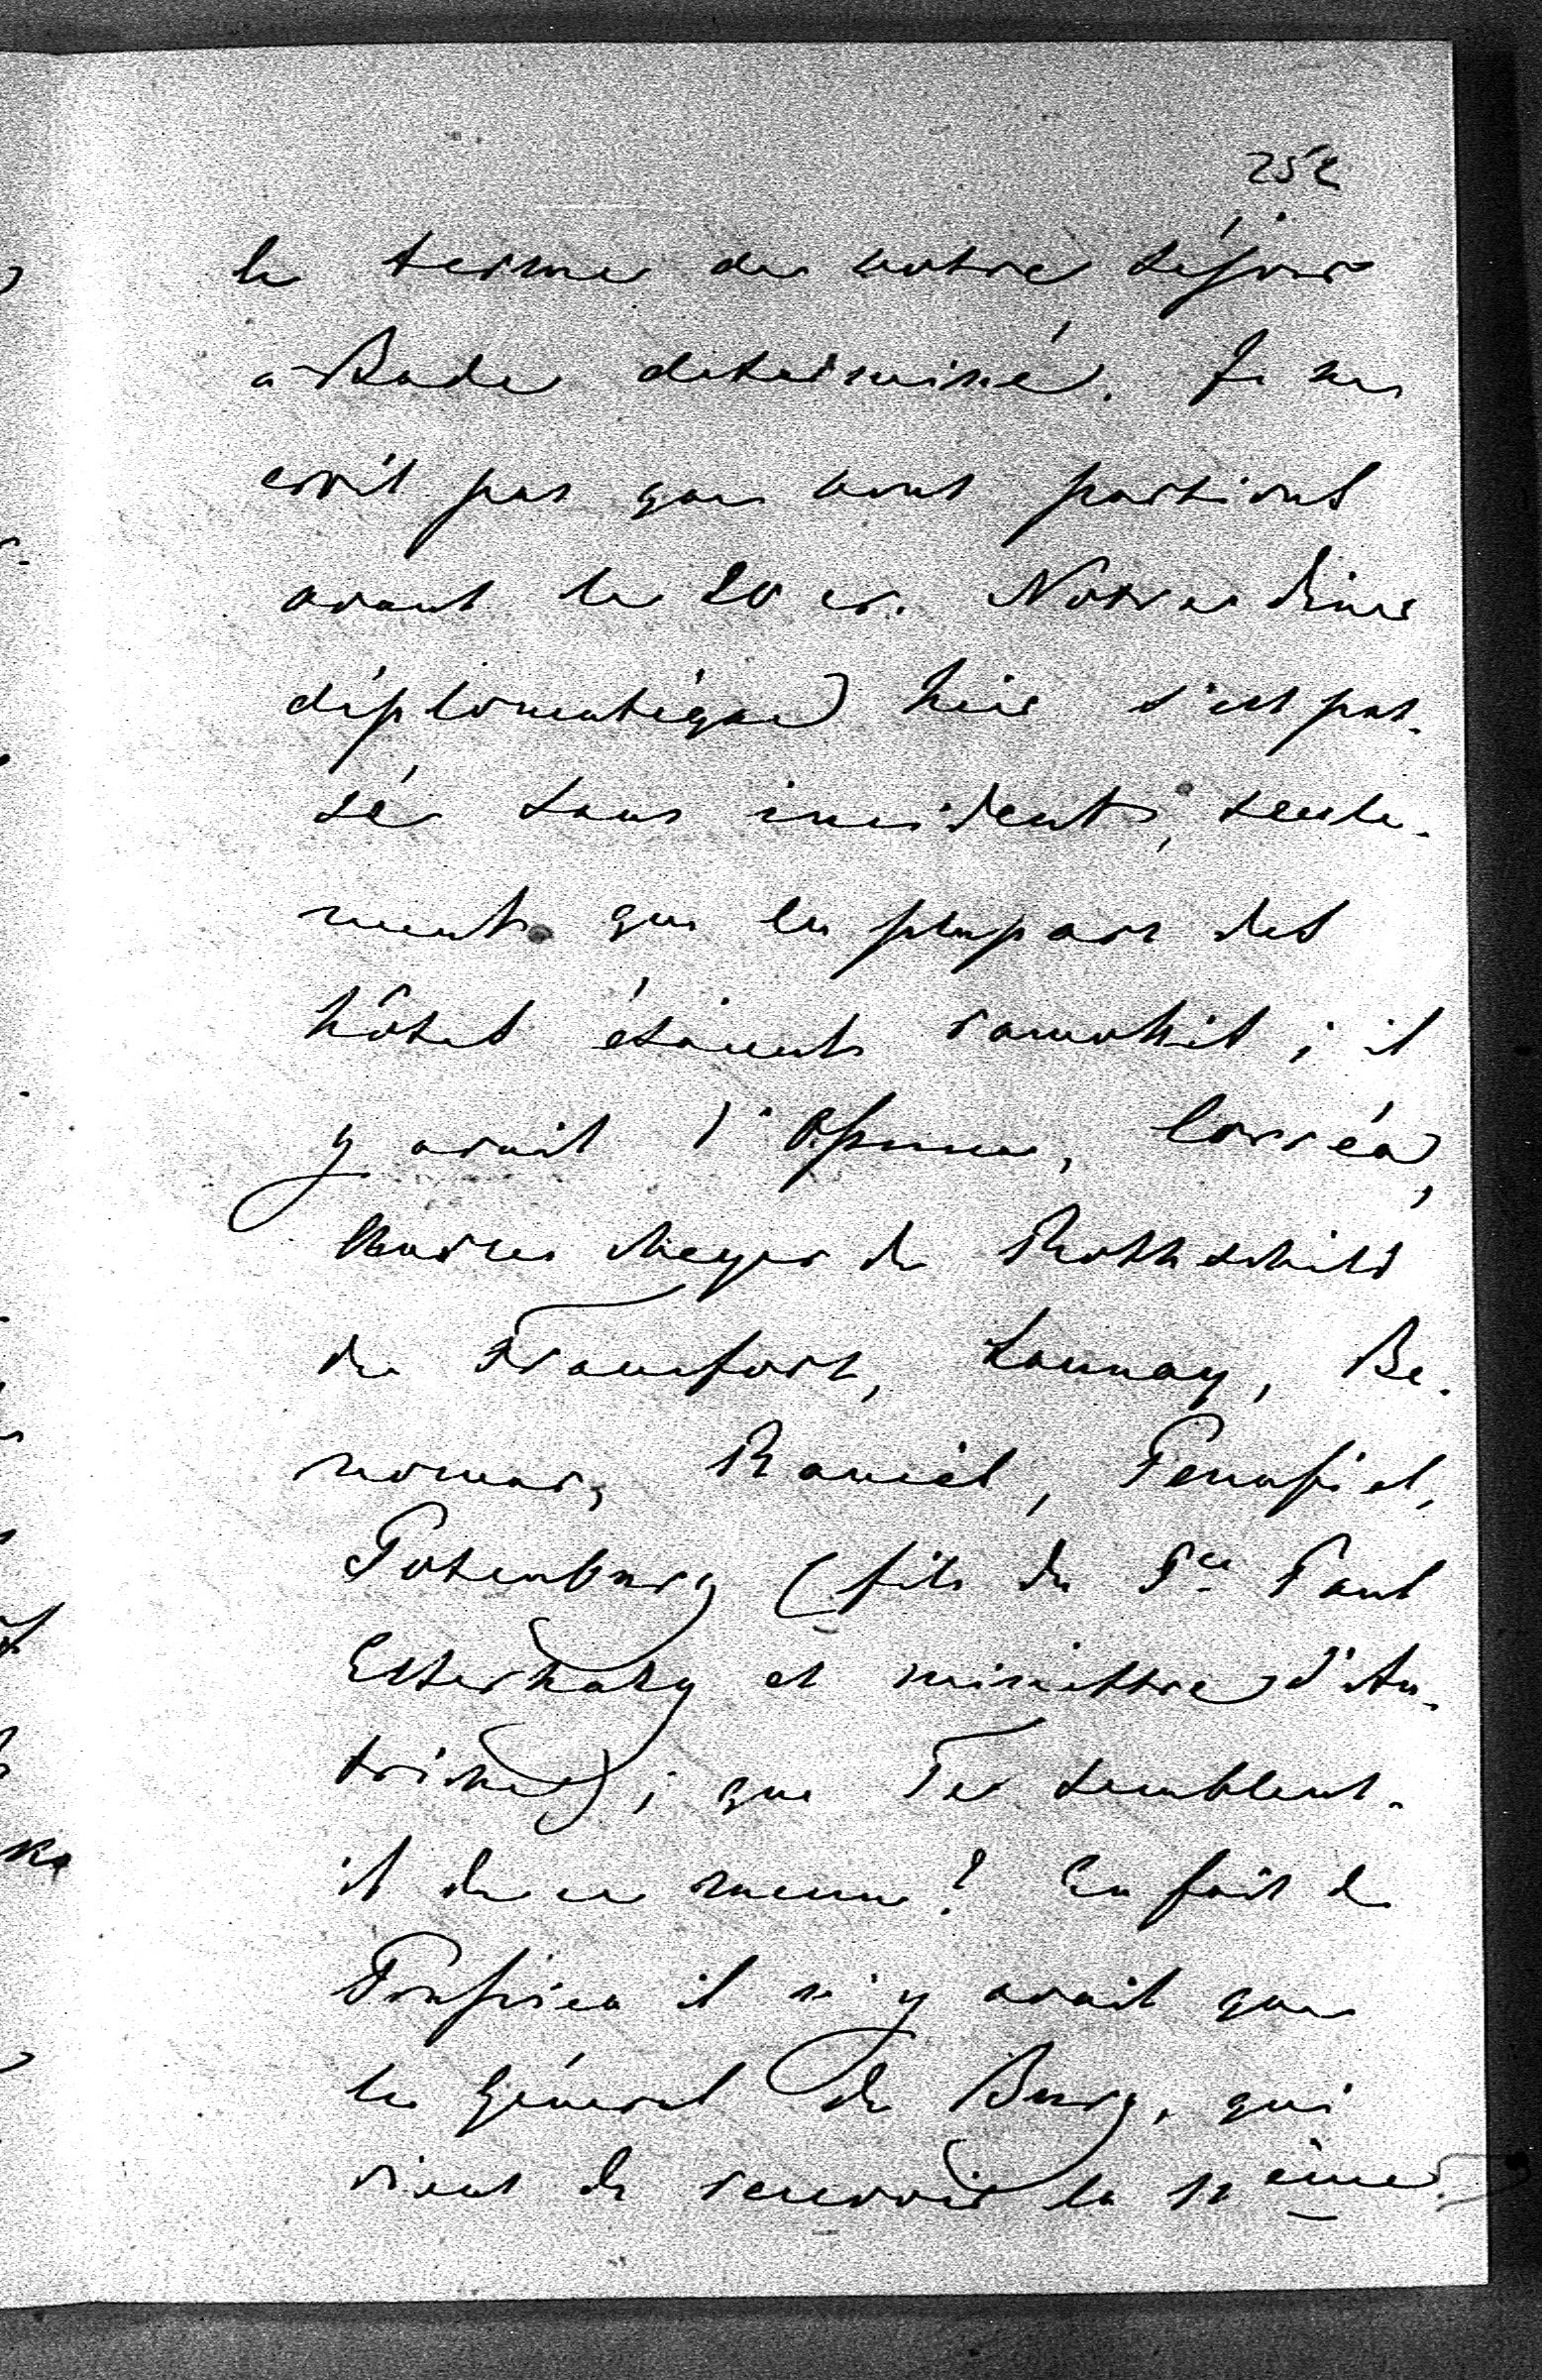 252
le terme de notre séjour
a Bade determiné. Je ne
croit pas que nous partions
avant le 20 cr. Notre diner
diplomatique hier s'est pas-
sé sans incident, seule-
ment que la plupart des
hôtes étaient ramollis ; il
y avait d' , Corréa,
Charles Meyer de Rothschild
de Francfort, Launay, Be-
nomar, Rancès, Penafiel,
Potenburg (fils du Pce Paul
Esterhazy et ministre d'Au-
triche) ; que Te semblent-
il de ce menu? En fait de
Prussien il n'y avait que
le général de Burg, qui
vient de recevoir la 12 ème